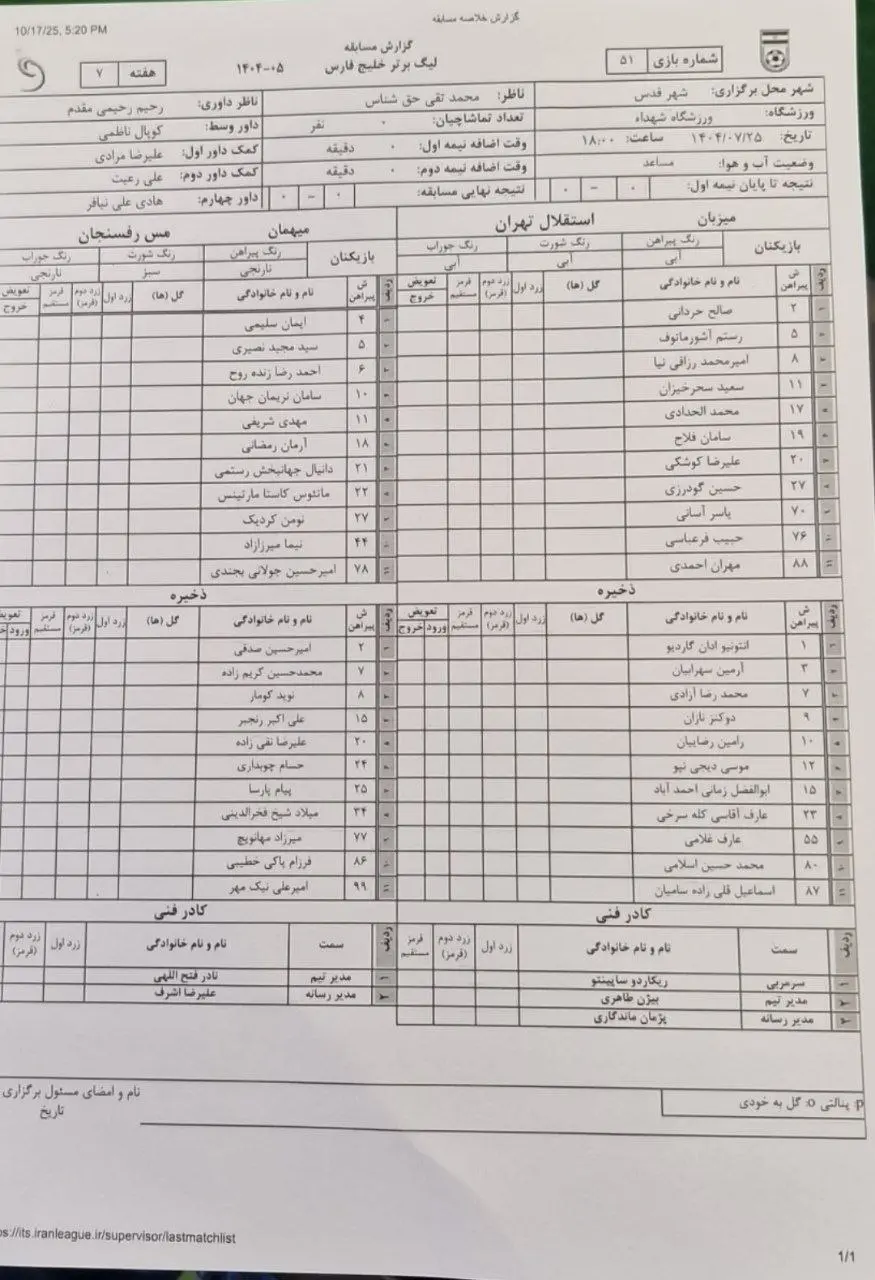 10/17/25, 5:20 PM
گزارش خلاصه مسابقه
گزارش مسابقه
لیگ برتر خلیج فارس ۰۵-۱۴۰۴
شماره بازی ۵۱
هفته ۷
شهر محل برگزاری: شهر قدس
ورزشگاه: ورزشگاه شهداء
تاریخ: ۱۴۰۴/۰۷/۲۵ ساعت: ۱۸:۰۰
وضعیت آب و هوا: مساعد
نتیجه تا پایان نیمه اول: ۰ – ۰
ناظر: محمد تقی حق شناس
تعداد تماشاچیان: ۰ نفر
وقت اضافه نیمه اول: ۰ دقیقه
وقت اضافه نیمه دوم: ۰ دقیقه
نتیجه نهایی مسابقه: ۰ – ۰
ناظر داوری: رحیم رحیمی مقدم
داور وسط: کوپال ناظمی
کمک داور اول: علیرضا مرادی
کمک داور دوم: علی رعیت
داور چهارم: هادی علی نیافر
میزبان استقلال تهران
بازیکنان رنگ پیراهن رنگ شورت رنگ جوراب
آبی آبی آبی
ردیف ش پیراهن نام و نام خانوادگی گل (ها) زرد اول زرد دوم (قرمز) قرمز مستقیم تعویض خروج
۱ ۲ صالح حردانی
۲ ۵ رستم آشورماتوف
۳ ۸ امیرمحمد رزاقی نیا
۴ ۱۱ سعید سحرخیزان
۵ ۱۷ محمد الحدادی
۶ ۱۹ سامان فلاح
۷ ۲۰ علیرضا کوشکی
۸ ۲۷ حسین گودرزی
۹ ۷۰ یاسر آسانی
۱۰ ۷۶ حبیب فرعباسی
۱۱ ۸۸ مهران احمدی
ذخیره
ردیف ش پیراهن نام و نام خانوادگی گل (ها) زرد اول زرد دوم (قرمز) قرمز مستقیم تعویض ورود خروج
۱ ۱ انتونیو ادان گاردیو
۲ ۳ آرمین سهرابیان
۳ ۷ محمد رضا آزادی
۴ ۹ دوکنز نازان
۵ ۱۰ رامین رضاییان
۶ ۱۲ موسی دیجی نپو
۷ ۱۵ ابوالفضل زمانی احمد آباد
۸ ۲۳ عارف آقاسی کله سرخی
۹ ۵۵ عارف غلامی
۱۰ ۸۰ محمد حسین اسلامی
۱۱ ۸۷ اسماعیل قلی زاده سامیان
کادر فنی
ردیف سمت نام و نام خانوادگی زرد اول زرد دوم (قرمز) قرمز مستقیم
۱ سرمربی ریکاردو ساپینتو
۲ مدیر تیم بیژن طاهری
۳ مدیر رسانه پژمان ماندگاری
میهمان مس رفسنجان
بازیکنان رنگ پیراهن رنگ شورت رنگ جوراب
نارنجی سبز نارنجی
ردیف ش پیراهن نام و نام خانوادگی گل (ها) زرد اول زرد دوم (قرمز) قرمز مستقیم تعویض خروج
۱ ۴ ایمان سلیمی
۲ ۵ سید مجید نصیری
۳ ۶ احمد رضا زنده روح
۴ ۱۰ سامان نریمان جهان
۵ ۱۱ مهدی شریفی
۶ ۱۸ آرمان رمضانی
۷ ۲۱ دانیال جهانبخش رستمی
۸ ۲۲ ماتئوس کاستا مارتینس
۹ ۲۷ نومن کردیک
۱۰ ۴۴ نیما میرزازاد
۱۱ ۷۸ امیرحسین جولانی بجندی
ذخیره
ردیف ش پیراهن نام و نام خانوادگی گل (ها) زرد اول زرد دوم (قرمز) قرمز مستقیم تعویض ورود
۱ ۲ امیرحسین صدقی
۲ ۷ محمدحسین کریم زاده
۳ ۸ نوید کومار
۴ ۱۵ علی اکبر رنجبر
۵ ۲۰ علیرضا نقی زاده
۶ ۲۴ حسام چوبداری
۷ ۲۵ پیام پارسا
۸ ۳۴ میلاد شیخ فخرالدینی
۹ ۷۷ میرزاد مهانویچ
۱۰ ۸۶ فرزام پاکی خطیبی
۱۱ ۹۹ امیرعلی نیک مهر
کادر فنی
ردیف سمت نام و نام خانوادگی زرد اول زرد دوم (قرمز)
۱ مدیر تیم نادر فتح اللهی
۲ مدیر رسانه علیرضا اشرف
p: پنالتی o: گل به خودی
نام و امضای مسئول برگزاری
تاریخ
ps://its.iranleague.ir/supervisor/lastmatchlist
1/1